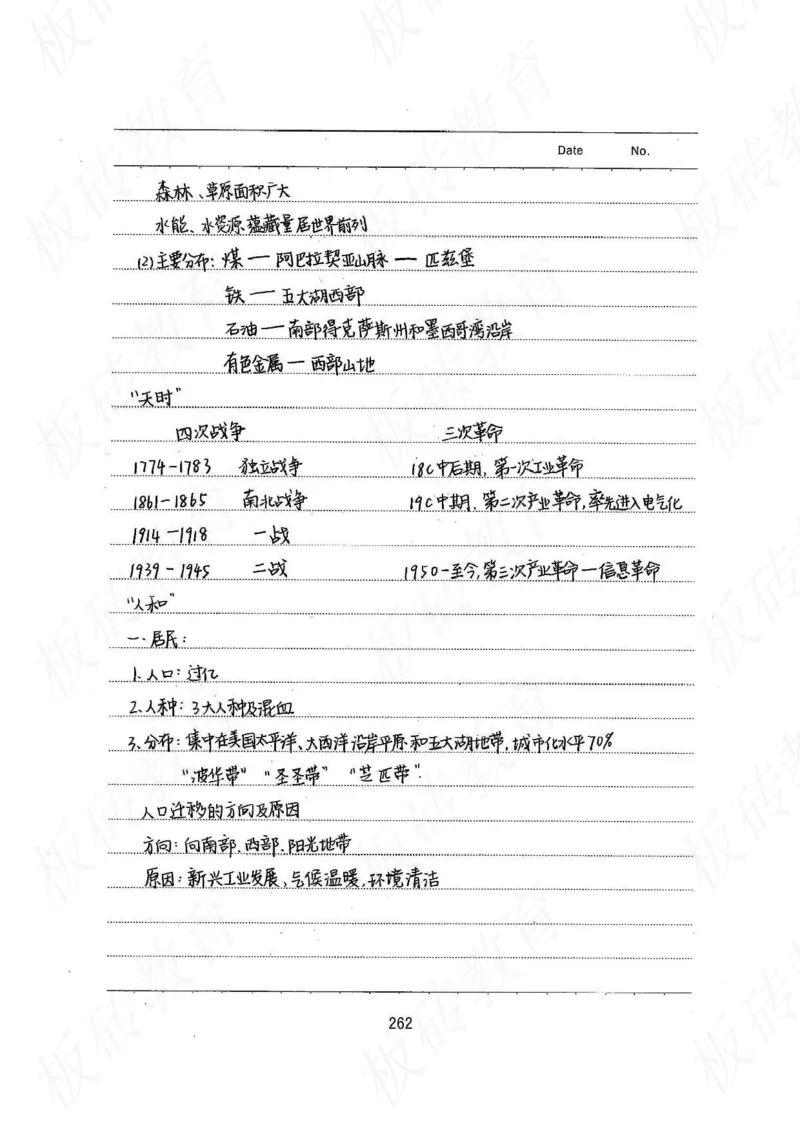 Date No.
森林、草原面积广大
水能、水资源蕴藏量居世界前列
(2)主要分布：煤 — 阿巴拉契亚山脉 — 匹兹堡
铁 — 五大湖西部
石油 — 南部得克萨斯州和墨西哥湾沿岸
有色金属 — 西部山地
“天时”
四次战争 三次革命
1774-1783 独立战争 18C中后期，第一次工业革命
1861-1865 南北战争 19C中期，第二次产业革命，率先进入电气化
1914-1918 一战
1939-1945 二战 1950-至今，第三次产业革命—信息革命
“人和”
一.居民：
1.人口：过亿
2.人种：3大人种及混血
3.分布：集中在美国太平洋、大西洋沿岸平原和五大湖地带，城市化水平70%
“波华带” “圣圣带” “芝匹带”.
人口迁移的方向及原因
方向：向南部、西部、阳光地带
原因：新兴工业发展、气候温暖、环境清洁
262
板砖教育